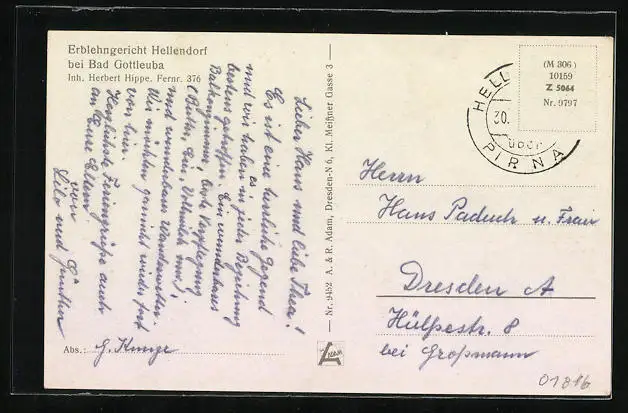 Erblehngericht Hellendorf
bei Bad Gottleuba
Inh. Herbert Hippe. Fernr. 376
Lieber Hans und liebe Thea!
Es ist eine herrliche Gegend
und wir haben es in jeder Beziehung
bestens getroffen. Ein wunderbares
Balkonzimmer, beste Verpflegung
(Butter, Eier, Vollmilch usw.)
und wunderbare Wanderwetter.
Wir möchten garnicht wieder fort
von hier.
Herzlichste Feriengrüße auch
an Eure Eltern
von
Lilo und Günther
Abs.: G. Kunze
Nr. 9452 A. & R. Adam, Dresden-N 6, Kl. Meißner Gasse 3
ADAM
HELL
30.
über
PIRNA
(M 306)
10159
Z 5064
Nr. 9797
Herrn
Hans Paduch u. Frau
Dresden A
Hülßestr. 8
bei Großmann
01816